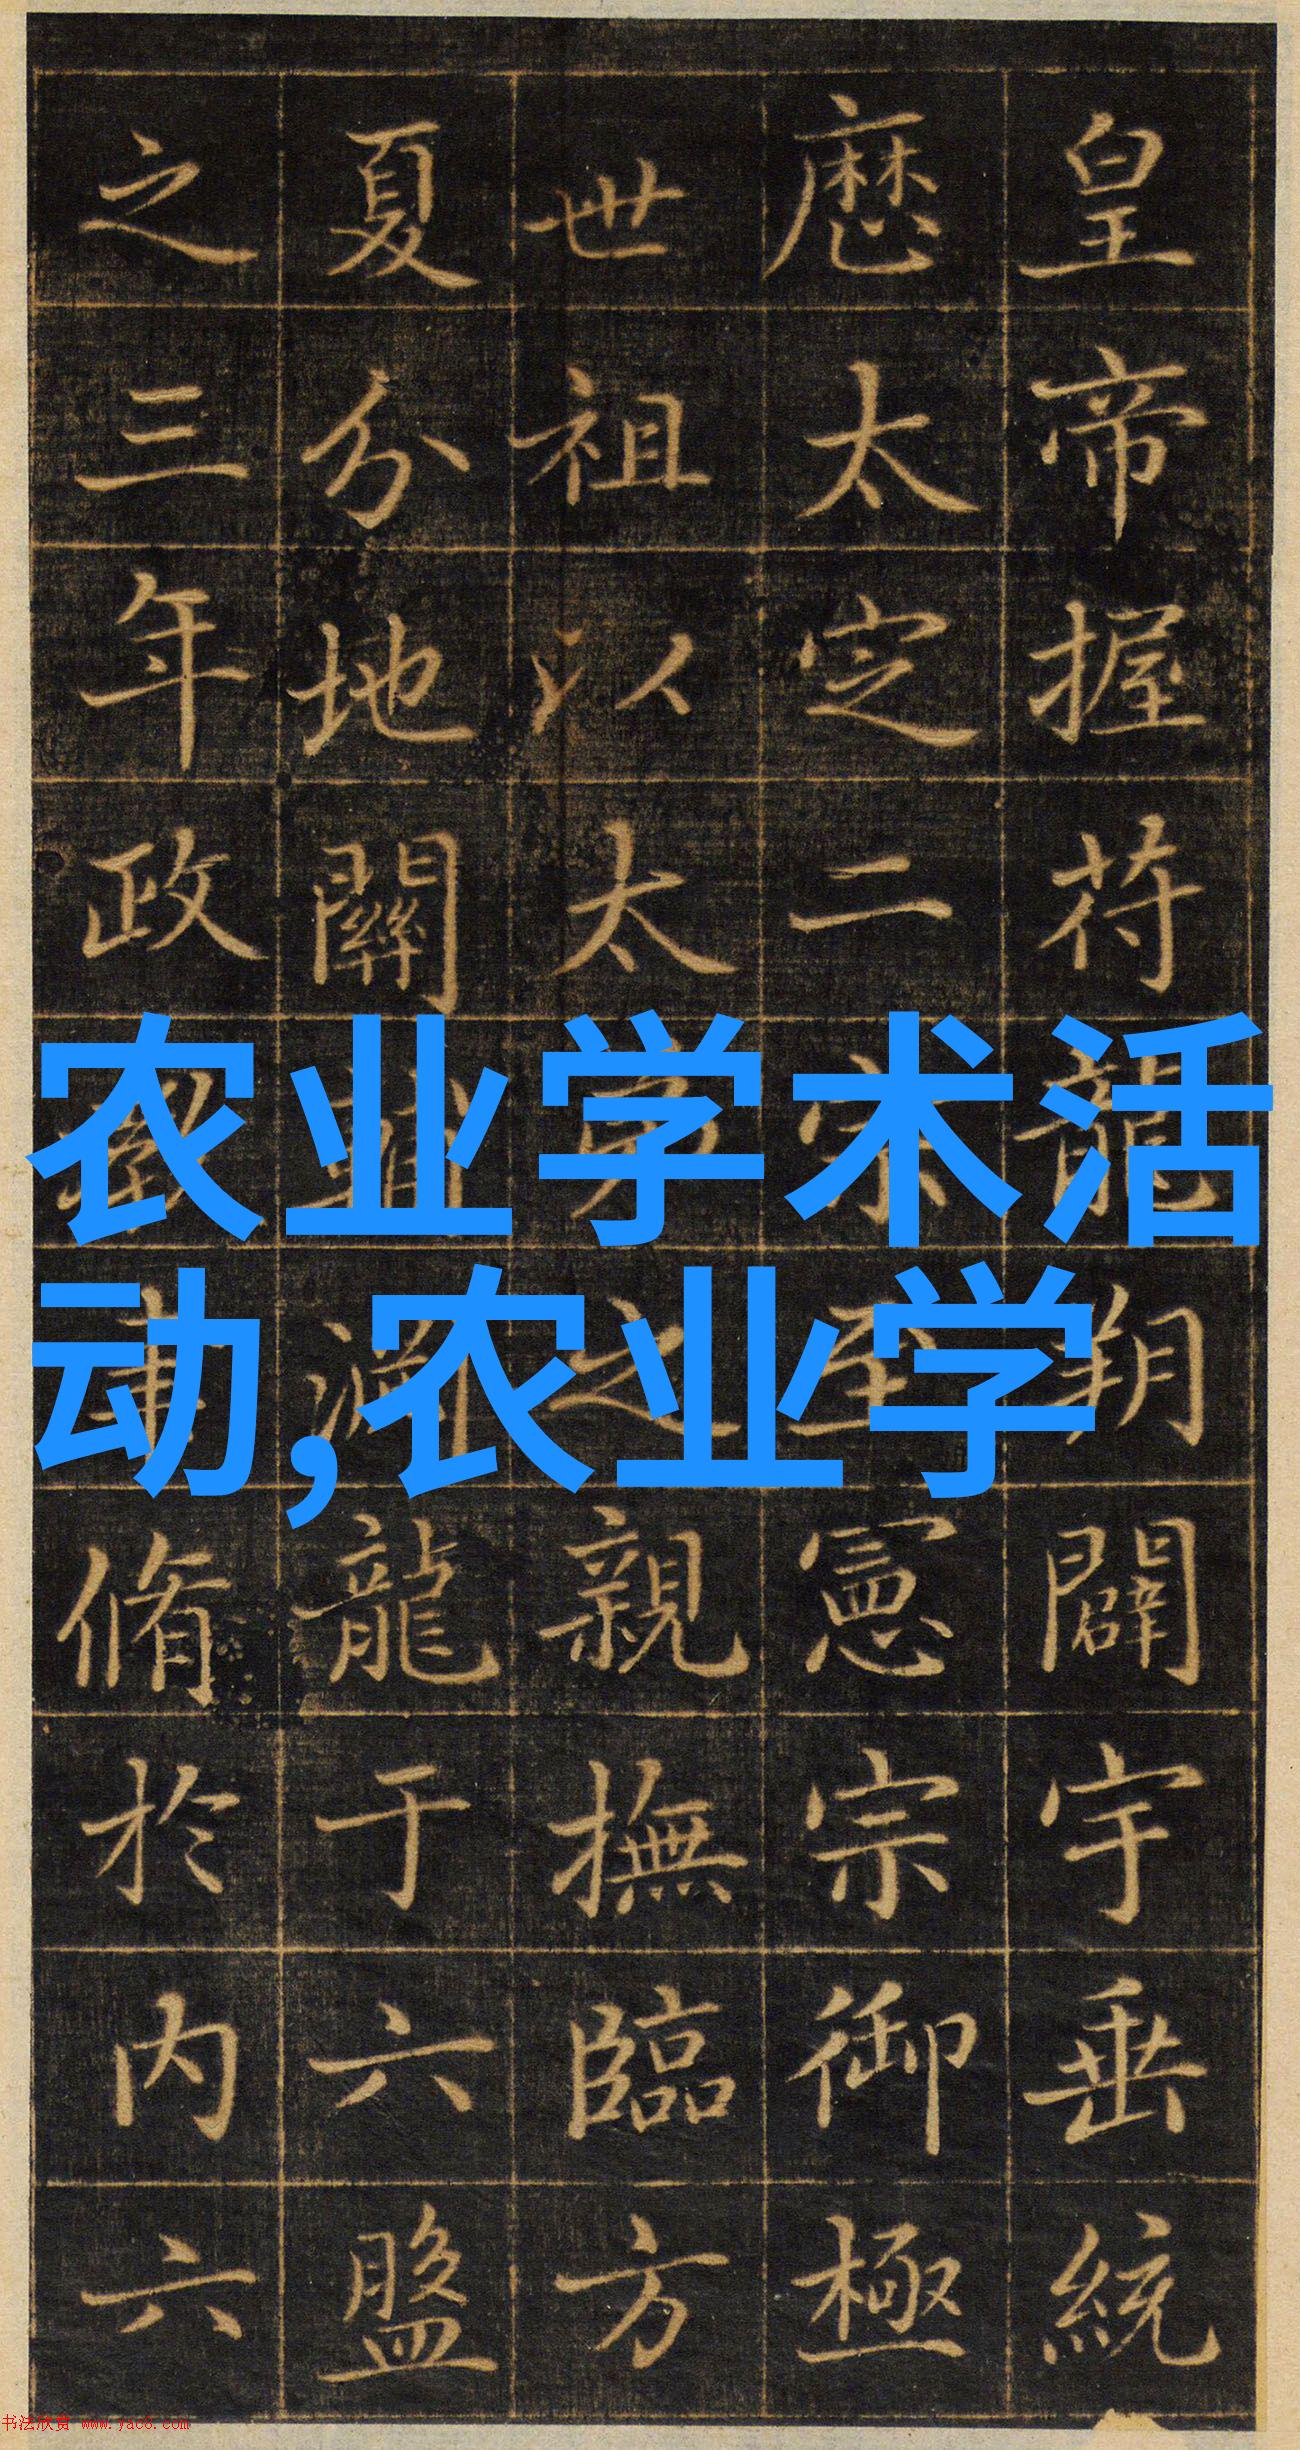 皇帝握符龍朔闢宇垂統
歷太定二宗至憲宗御極
世祖以太弟之親撫臨方
夏分地關淵龍于六盤
之三年政脩於内六
农业学术活
动,农业学
书法欣赏 www.yac8.com